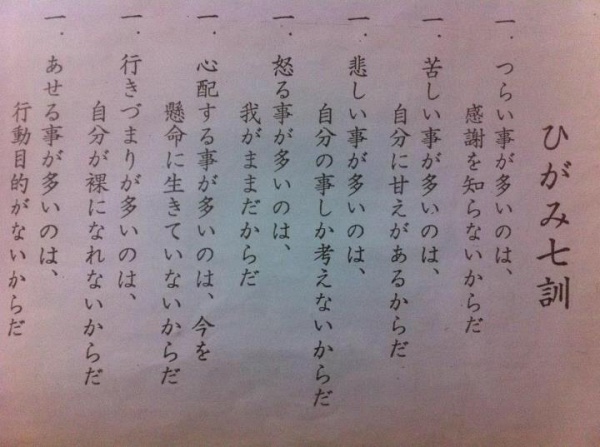 ひがみ七訓
一．つらい事が多いのは、
感謝を知らないからだ
一．苦しい事が多いのは、
自分に甘えがあるからだ
一．悲しい事が多いのは、
自分の事しか考えないからだ
一．怒る事が多いのは、
我がままだからだ
一．心配する事が多いのは、今を
懸命に生きていないからだ
一．行きづまりが多いのは、
自分が裸になれないからだ
一．あせる事が多いのは、
行動目的がないからだ